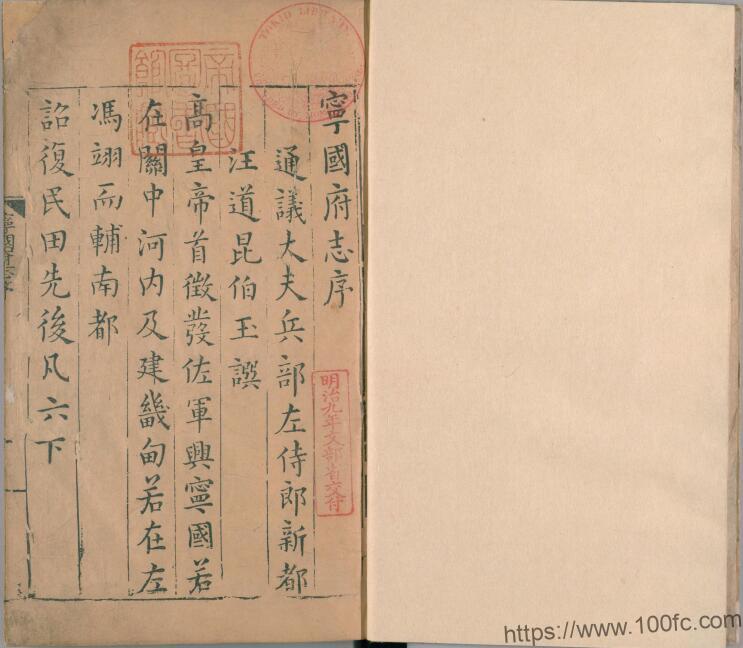 寧國府志序
通議大夫兵部左侍郎新都
汪道昆伯玉譔
高皇帝首徵發佐軍興寧國若
在關中河内及建畿甸若在左
馮翊而輔南都
詔復民田先後凡六下
明治九年文部省交付
TOKIO LIBRARY
https://www.100fc.com